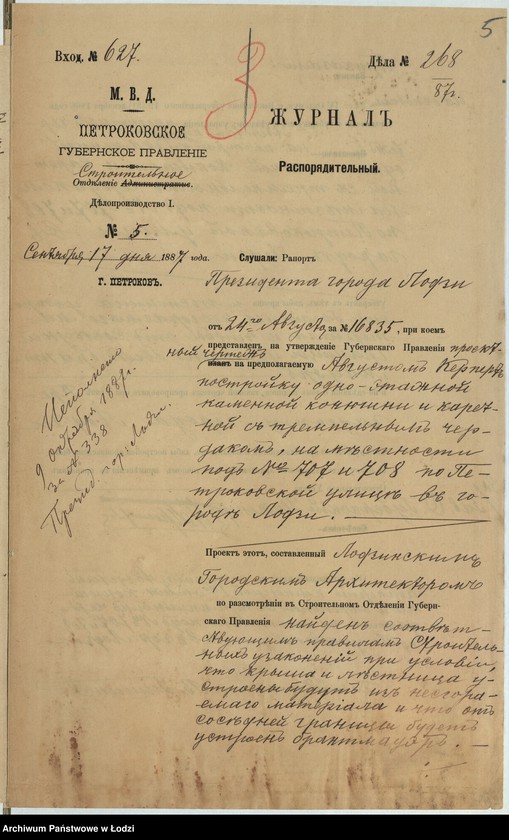 5
Вход. № 627.
Дѣла № 268
87г.
3
М. В. Д.
ПЕТРОКОВСКОЕ
ГУБЕРНСКОЕ ПРАВЛЕНІЕ
Строительное
Отдѣленіе Административ.
Дѣлопроизводство I.
№ 5.
Сентября 17 дня 1887 года.
Г. ПЕТРОКОВЪ.
ЖУРНАЛЪ
Распорядительный.
Слушали: Рапортъ
Президента города Лодзи
отъ 24го Августа за № 16835, при коемъ
представленъ на утвержденіе Губернскаго Правленія проект-
ный чертежъ на предполагаемую Августомъ
постройку одно-этажной
каменной конюшни и карет-
ной съ тремпельнымъ чер-
дакомъ, на мѣстности
подъ №№ 707 и 708 по Пе-
троковской улицѣ въ го-
родѣ Лодзи.
Исполнено
9 октября 1887г.
за № 338
Презид. гор. Лодзи.
Проектъ этотъ, составленный Лодзинскимъ
Городскимъ Архитекторомъ
по разсмотрѣніи въ Строительномъ Отдѣленіи Губерн-
скаго Правленія найденъ соотвѣт-
ствующимъ правиламъ Строитель-
ныхъ узаконеній при условіи,
что крыша и лѣстница у-
строены будутъ изъ несгора-
емаго матеріала и что отъ
сосѣдней границы будетъ
устроенъ брантмауеръ.
Archiwum Państwowe w Łodzi